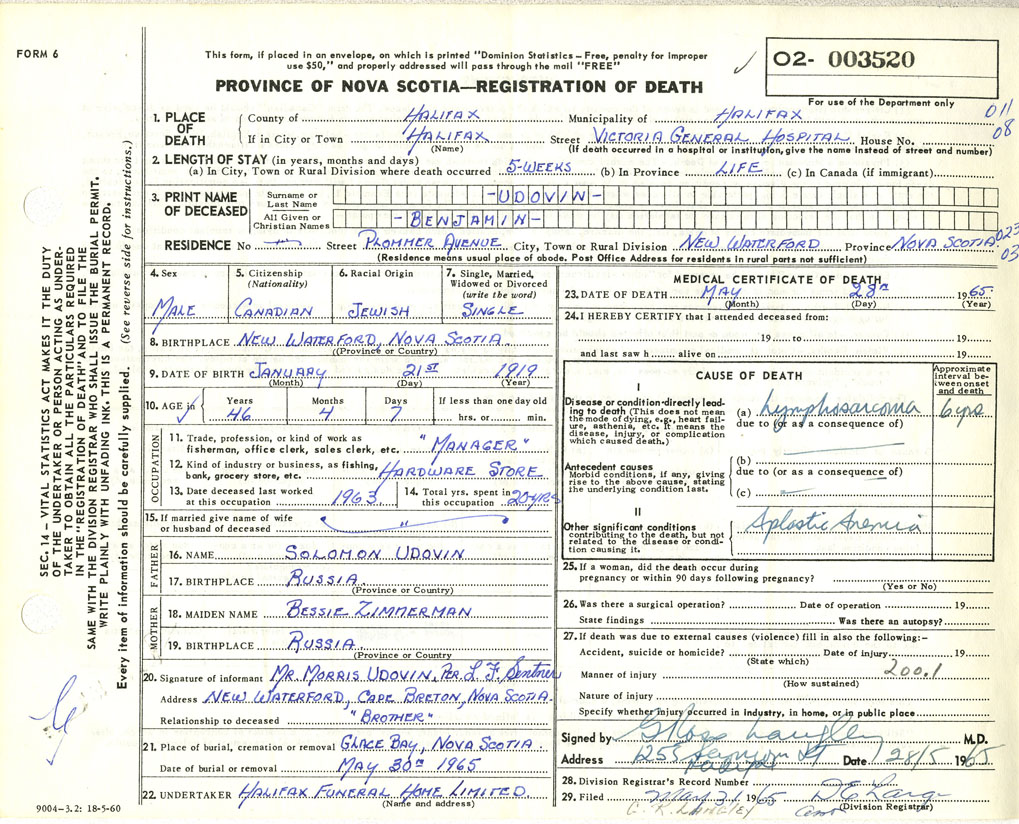 FORM 6
This form, if placed in an envelope, on which is printed "Dominion Statistics – Free, penalty for improper
use $50," and properly addressed will pass through the mail "FREE"
O2- 003520
PROVINCE OF NOVA SCOTIA—REGISTRATION OF DEATH
For use of the Department only
011
08
1. PLACE OF DEATH
County of HALIFAX Municipality of HALIFAX
If in City or Town HALIFAX Street VICTORIA GENERAL HOSPITAL House No.
(Name) (If death occurred in a hospital or institution, give the name instead of street and number)
2. LENGTH OF STAY (in years, months and days)
(a) In City, Town or Rural Division where death occurred 5-WEEKS (b) In Province LIFE (c) In Canada (if immigrant)
3. PRINT NAME OF DECEASED
Surname or Last Name -UDOVIN-
All Given or Christian Names -BENJAMIN-
RESIDENCE No Street PLOMMER AVENUE City, Town or Rural Division NEW WATERFORD Province NOVA SCOTIA
023
03
(Residence means usual place of abode. Post Office Address for residents in rural parts not sufficient)
4. Sex
MALE
5. Citizenship
(Nationality)
CANADIAN
6. Racial Origin
JEWISH
7. Single, Married,
Widowed or Divorced
(write the word)
SINGLE
8. BIRTHPLACE NEW WATERFORD, NOVA SCOTIA.
(Province or Country)
9. DATE OF BIRTH JANUARY 21ST 1919
(Month) (Day) (Year)
10. AGE in
Years Months Days If less than one day old
46 4 7 hrs. or min.
OCCUPATION
11. Trade, profession, or kind of work as
fisherman, office clerk, sales clerk, etc. "MANAGER"
12. Kind of industry or business, as fishing,
bank, grocery store, etc. HARDWARE STORE
13. Date deceased last worked
at this occupation 1963
14. Total yrs. spent in
this occupation 20 YRS
15. If married give name of wife
or husband of deceased "
FATHER
16. NAME SOLOMON UDOVIN
17. BIRTHPLACE RUSSIA.
(Province or Country)
MOTHER
18. MAIDEN NAME BESSIE ZIMMERMAN
19. BIRTHPLACE RUSSIA.
(Province or Country)
20. Signature of informant MR. MORRIS UDOVIN, PER L. F. Sentner
Address NEW WATERFORD, CAPE BRETON, NOVA SCOTIA.
Relationship to deceased "BROTHER"
21. Place of burial, cremation or removal GLACE BAY, NOVA SCOTIA.
Date of burial or removal MAY 30TH 1965
22. UNDERTAKER HALIFAX FUNERAL HOME LIMITED.
(Name and address)
MEDICAL CERTIFICATE OF DEATH
23. DATE OF DEATH MAY 28TH 1965.
(Month) (Day) (Year)
24. I HEREBY CERTIFY that I attended deceased from:
19 to 19
and last saw h alive on 19
CAUSE OF DEATH
Approximate
interval be-
tween onset
and death
I
Disease or condition directly lead-
ing to death (This does not mean
the mode of dying, e.g., heart fail-
ure, asthenia, etc. It means the
disease, injury, or complication
which caused death.)
(a) Lymphosarcoma 6 yrs
due to (or as a consequence of)
Antecedent causes
Morbid conditions, if any, giving
rise to the above cause, stating
the underlying condition last.
(b)
due to (or as a consequence of)
(c)
II
Other significant conditions
contributing to the death, but not
related to the disease or condi-
tion causing it.
Aplastic Anemia
25. If a woman, did the death occur during
pregnancy or within 90 days following pregnancy?
(Yes or No)
26. Was there a surgical operation? Date of operation 19
State findings Was there an autopsy?
27. If death was due to external causes (violence) fill in also the following:–
Accident, suicide or homicide? Date of injury 19
(State which)
Manner of injury 200.1
(How sustained)
Nature of injury
Specify whether injury occurred in industry, in home, or in public place
Signed by G Ross Langley M.D.
Address 1255 St Date 28/5 1965
28. Division Registrar's Record Number
29. Filed May 31 1965
(Division Registrar)
G. R. LANGLEY
SEC. 14 – VITAL STATISTICS ACT MAKES IT THE DUTY
OF THE UNDERTAKER OR PERSON ACTING AS UNDER-
TAKER TO OBTAIN ALL THE PARTICULARS REQUIRED
IN THE "REGISTRATION OF DEATH" AND TO FILE THE
SAME WITH THE DIVISION REGISTRAR WHO SHALL ISSUE THE BURIAL PERMIT.
WRITE PLAINLY WITH UNFADING INK. THIS IS A PERMANENT RECORD.
Every item of information should be carefully supplied. (See reverse side for instructions.)
9004-3.2: 18-5-60